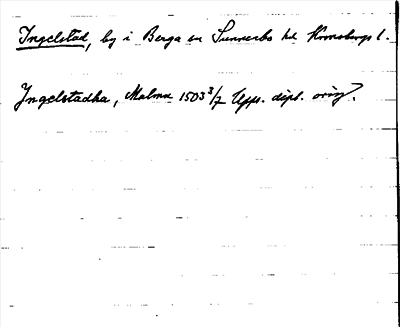 Ingelstad, by i Berga sn Sunnerbo hd Kronobergs l.
Ingelstadha, Malmö 1503 3/7 Upps. dipl. orig.